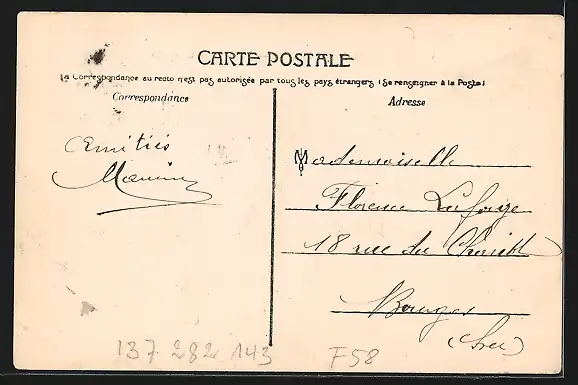 CARTE POSTALE
La Correspondance au recto n'est pas autorisée par tous les pays étrangers (Se renseigner à la Poste)
Correspondance
Adresse
Amitiés
Mademoiselle
Florence Laforge
18 rue du
Bourges
(Cher)
137 282 143
F58